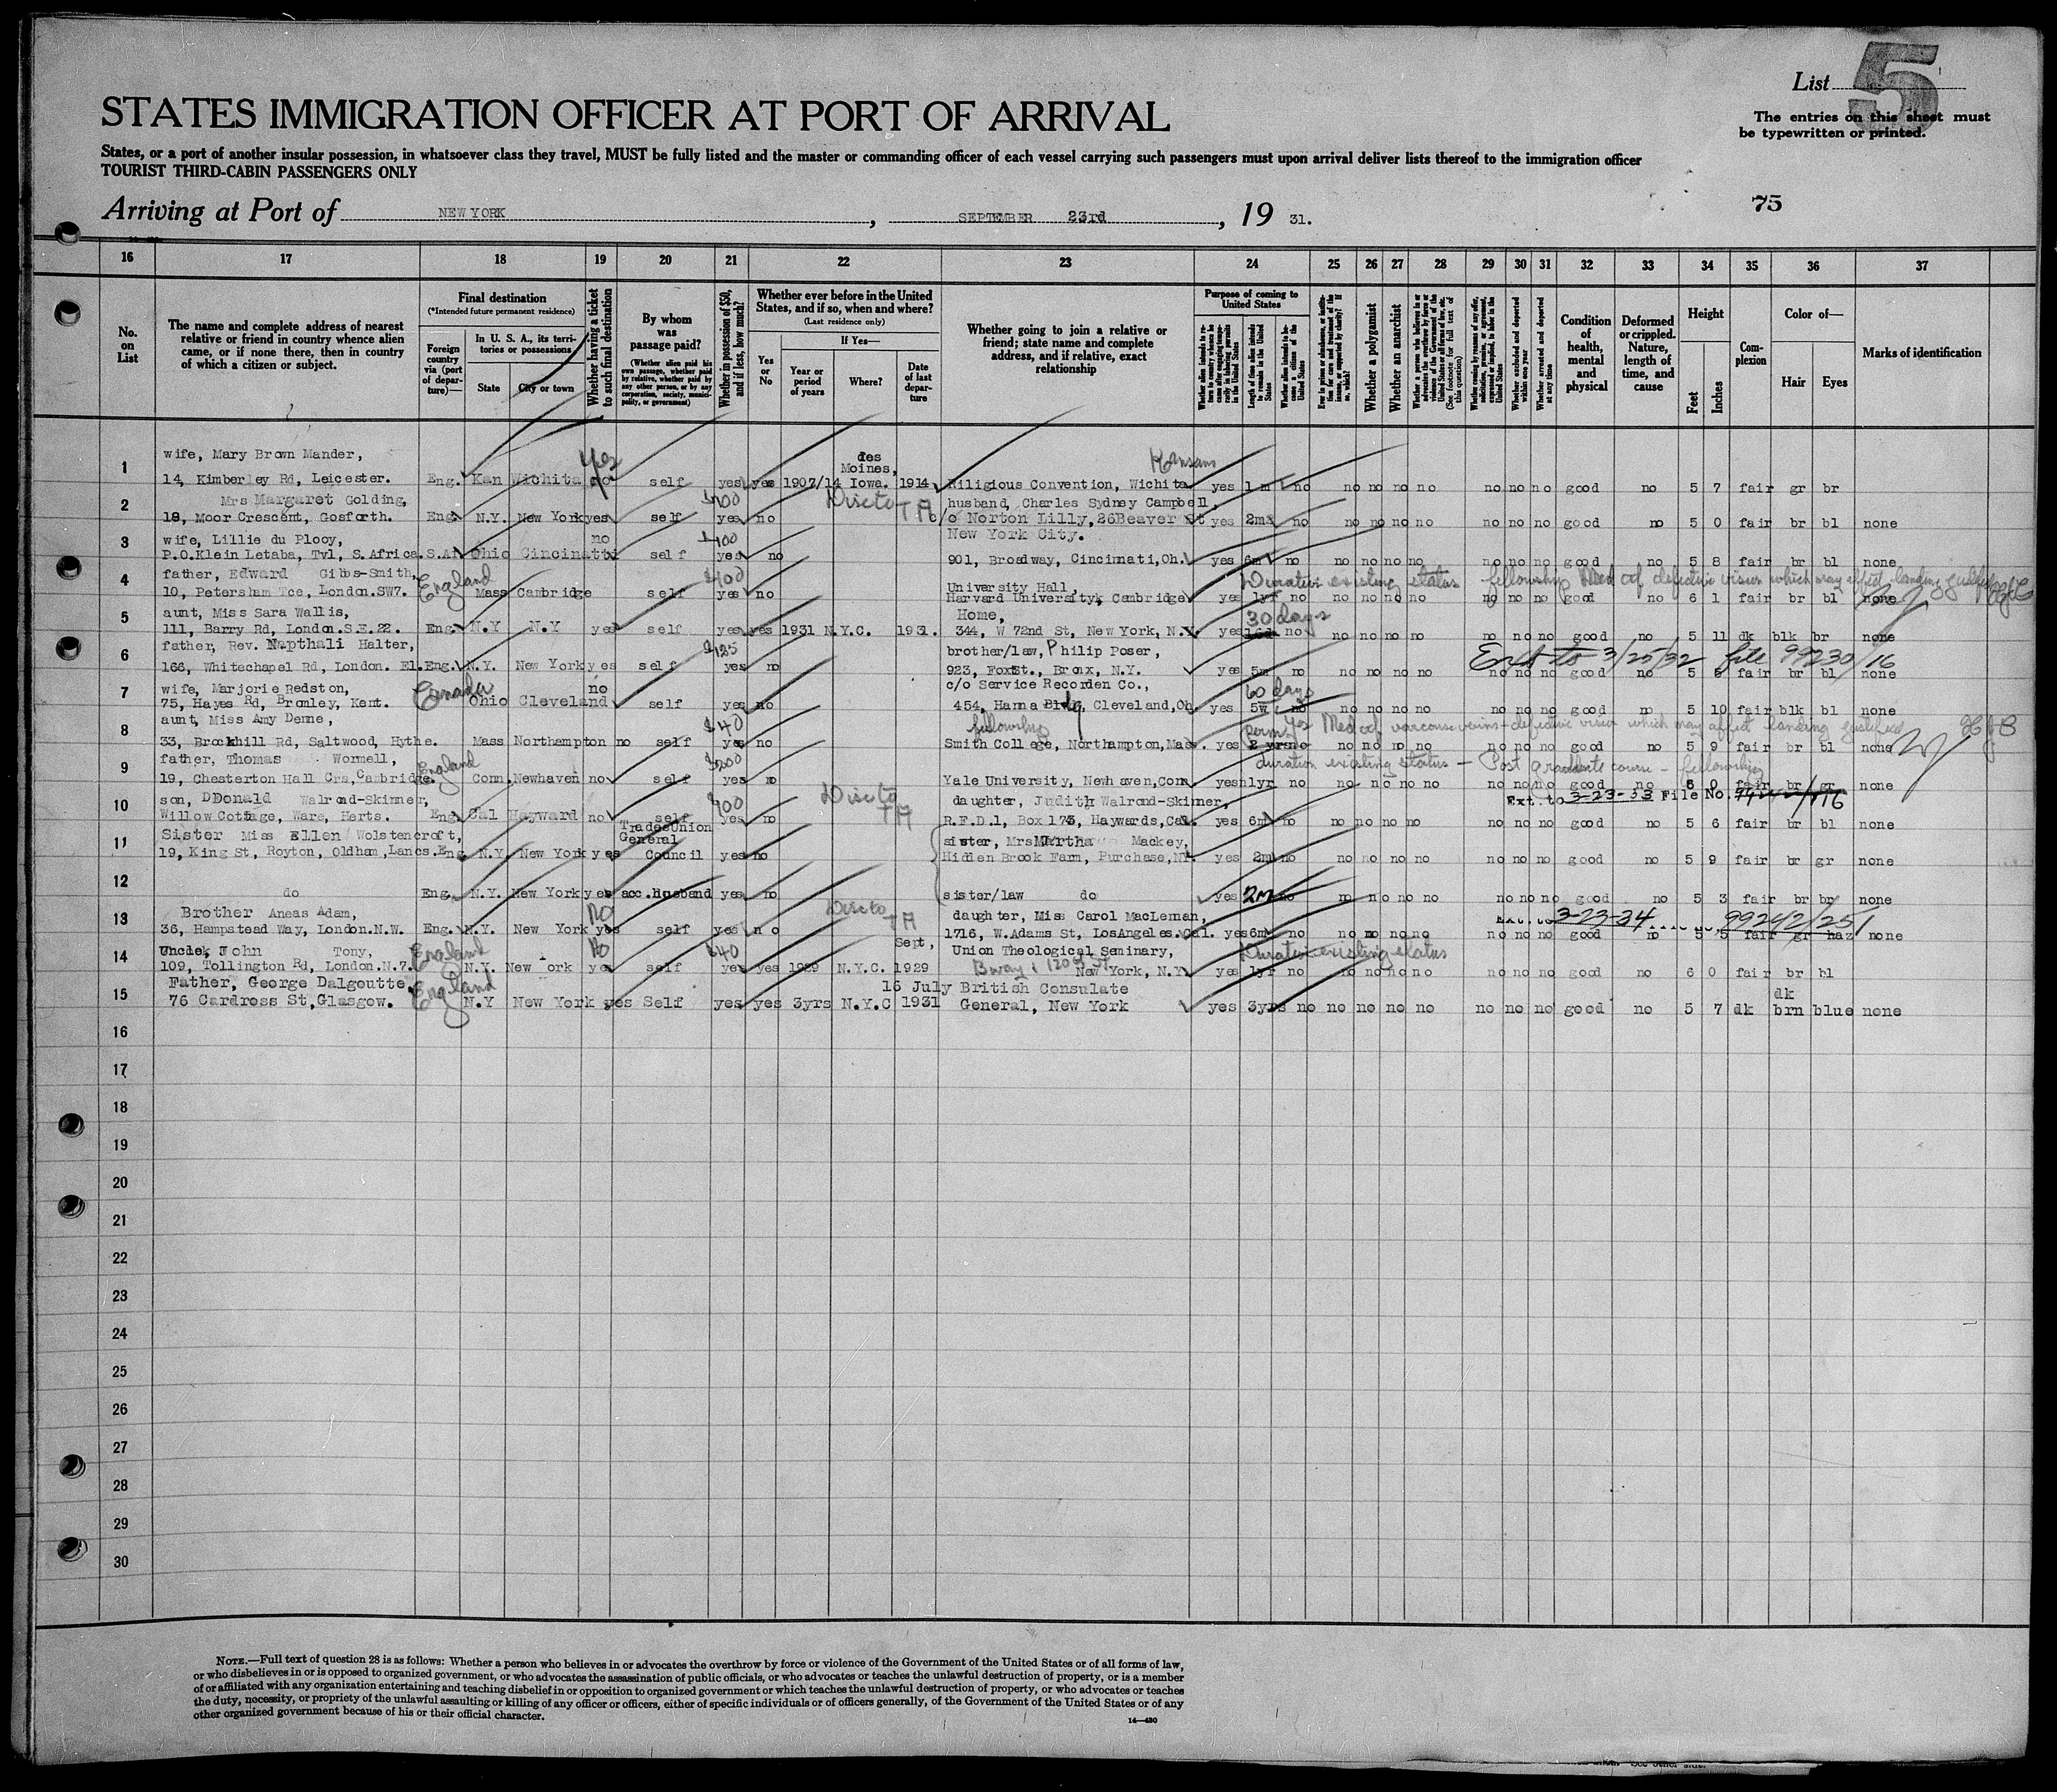 List 5
STATES IMMIGRATION OFFICER AT PORT OF ARRIVAL
The entries on this sheet must
be typewritten or printed.
States, or a port of another insular possession, in whatsoever class they travel, MUST be fully listed and the master or commanding officer of each vessel carrying such passengers must upon arrival deliver lists thereof to the immigration officer
TOURIST THIRD-CABIN PASSENGERS ONLY
75
Arriving at Port of NEW YORK, SEPTEMBER 23rd, 19 31.
16 17 18 19 20 21 22 23 24 25 26 27 28 29 30 31 32 33 34 35 36 37
No. on List
The name and complete address of nearest relative or friend in country whence alien came, or if none there, then in country of which a citizen or subject.
Final destination
(*Intended future permanent residence)
Foreign country via (port of departure)—
In U. S. A., its territories or possessions
State
City or town
Whether having a ticket to such final destination
By whom was passage paid?
(Whether alien paid his own passage, whether paid by relative, whether paid by any other person, or by any corporation, society, municipality, or government)
Whether in possession of $50, and if less, how much?
Whether ever before in the United States, and if so, when and where?
(Last residence only)
If Yes—
Yes or No
Year or period of years
Where?
Date of last departure
Whether going to join a relative or friend; state name and complete address, and if relative, exact relationship
Purpose of coming to United States
Length of time alien intends to remain in the United States
Whether alien intends to become a citizen of the United States
Whether a polygamist
Whether an anarchist
Whether arrested and deported at any time
Condition of health, mental and physical
Deformed or crippled. Nature, length of time, and cause
Height
Feet
Inches
Complexion
Color of—
Hair
Eyes
Marks of identification
1 wife, Mary Brown Mander,
14, Kimberley Rd, Leicester. Eng. Kan Wichita no yes self yes yes 1907/14 des Moines, Iowa. 1914 Riligious Convention, Wichita Kansas yes 1 m no no no no no no no no good no 5 7 fair gr br
2 Mrs Margaret Golding,
18, Moor Crescent, Gosforth. Eng. N.Y. New York yes self yes no husband, Charles Sydney Campbell,
c/o Norton Lilly, 26Beaver St yes 2ms no no no no no no no no good no 5 0 fair br bl none
New York City.
3 wife, Lillie du Plooy,
P.O.Klein Letaba, Tvl, S.Africa. S.Af. Ohio Cincinatti no self yes no 901, Broadway, Cincinnati,Oh. yes 6m no no no no no no no no good no 5 8 fair br bl none
4 father, Edward Gibbs-Smith,
10, Petersham Tce, London.SW7. England Mass Cambridge self yes no University Hall,
Harvard University, Cambridge yes 1yr no no no no no no no no good no 6 1 fair br bl none
Duration existing status fellowship Med cf defective vision which may affect landing
5 aunt, Miss Sara Wallis,
111, Barry Rd, London.S.E.22. Eng. N.Y N.Y yes self yes yes 1931 N.Y.C. 1931. Home,
344, W 72nd St, New York, N.Y. yes 30 days no no no no no no no no good no 5 11 dk blk br none
6 father, Rev. Napthali Halter,
166, Whitechapel Rd, London. E1. Eng. N.Y. New York yes self yes no brother/law, Philip Poser,
923, FoxSt., Bronx, N.Y. yes 5m no no no no no no no no good no 5 fair br bl none
Ext to 3/25/32 file 99230/16
7 wife, Marjorie Redston,
75, Hayes Rd, Bromley, Kent. Canada Ohio Cleveland no self yes no c/o Service Recorden Co.,
454, Hanna Bldg, Cleveland,Oh yes 5w 60 days no no no no no no no no good no 5 10 fair blk bl none
8 aunt, Miss Amy Denne,
33, Brockhill Rd, Saltwood, Hythe. Mass Northampton no self $40 yes no fellowship
Smith College, Northampton,Mas. yes 2 yrs no perm yes no no no no no no no good no 5 9 fair br bl none
Med cf varicose veins - defective vision which may affect landing
9 father, Thomas Wormell,
19, Chesterton Hall Crs,Cambridge. England Conn. Newhaven no self $200 yes no Yale University, Newhaven,Conn yes 1yr no no no no no no no no good no 6 0 fair br gr none
duration existing status — Post graduate course — fellowship
10 son, DDonald Walrond-Skinner,
Willow Cottage, Ware, Herts. Eng. Cal Hayward no self yes no daughter, Judith Walrond-Skinner,
R.F.D.1, Box 173, Haywards,Cal. yes 6m no no no no no no no no good no 5 6 fair br bl none
Ext. to 3-23-33 File No.
11 Sister Miss Ellen Wolstencroft,
19, King St, Royton, Oldham,Lancs. Eng N.Y. New York yes Trades Union General Council yes no sister, Mrs Martha Mackey,
Hidden Brook Farm, Purchase,NY. yes 2m no no no no no no no no good no 5 9 fair br gr none
12 do Eng. N.Y. New York yes acc.husband yes no sister/law do yes 2m no no no no no no no no good no 5 3 fair br br none
13 Brother Aneas Adam,
36, Hampstead Way, London.N.W. Eng. N.Y. New York yes No self yes no daughter, Miss Carol MacLernan,
1716, W.Adams St, LosAngeles.Cal. yes 6m no no no no no no no no good no 5 5 fair gr haz none
Ext. to 3-23-34 99242/251
14 Uncle, John Tony,
109, Tollington Rd, London.N.7. England N.Y. New York yes No self $40 yes yes 1929 N.Y.C. Sept, 1929 Union Theological Seminary,
Bway & 120th St New York, N.Y. yes 1yr no no no no no no no no good no 6 0 fair br bl
Duration existing status
15 Father, George Dalgoutte,
76 Cardross St,Glasgow. England N.Y New York yes Self yes yes 3yrs N.Y.C 15 July 1931 British Consulate
General, New York yes 3yrs no no no no no no no no good no 5 7 dk dk brn blue none
16
17
18
19
20
21
22
23
24
25
26
27
28
29
30
NOTE.—Full text of question 28 is as follows: Whether a person who believes in or advocates the overthrow by force or violence of the Government of the United States or of all forms of law,
or who disbelieves in or is opposed to organized government, or who advocates the assassination of public officials, or who advocates or teaches the unlawful destruction of property, or is a member
of or affiliated with any organization entertaining and teaching disbelief in or opposition to organized government or which teaches the unlawful destruction of property, or who advocates or teaches
the duty, necessity, or propriety of the unlawful assaulting or killing of any officer or officers, either of specific individuals or of officers generally, of the Government of the United States or of any
other organized government because of his or their official character.
14—430